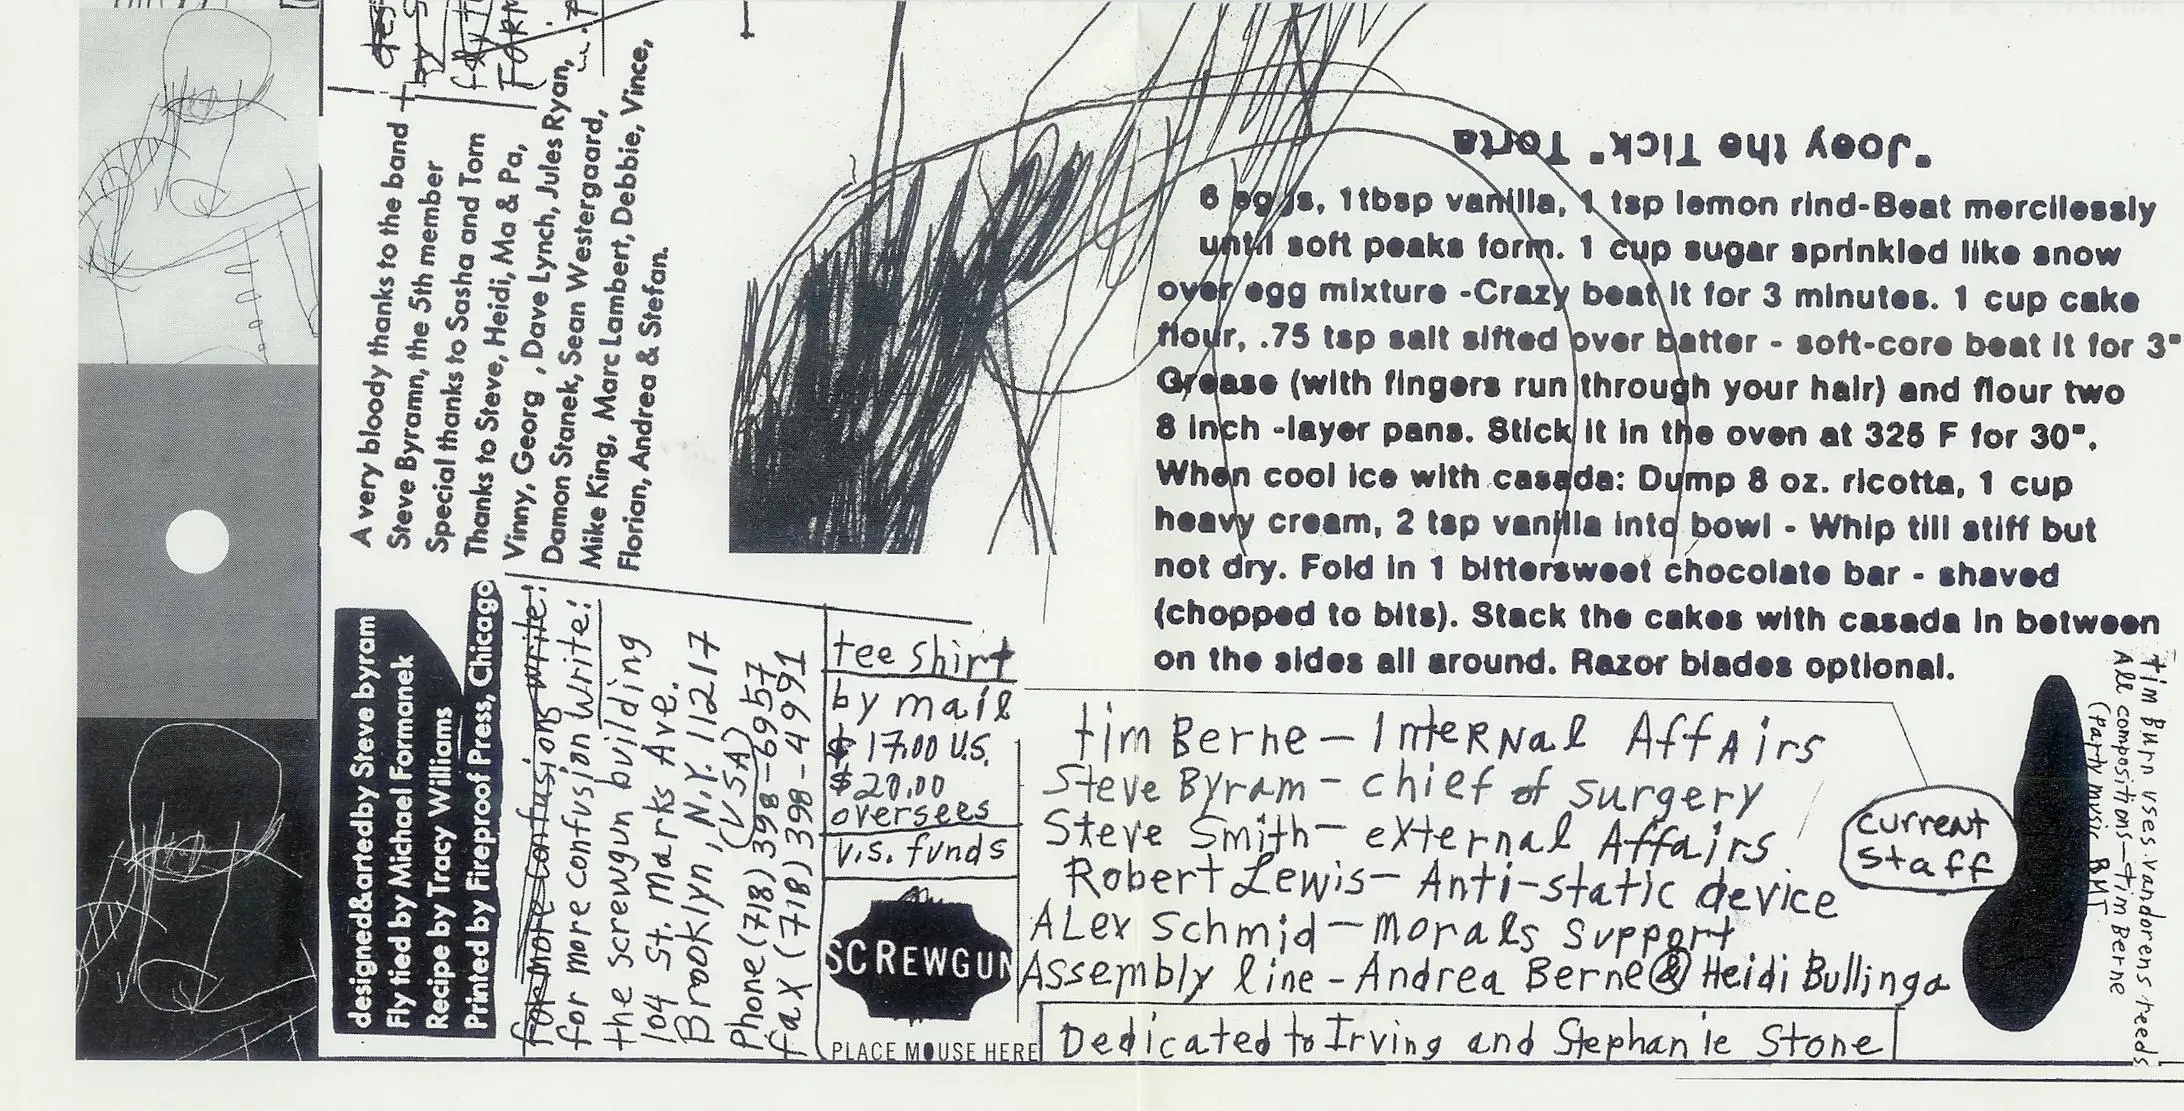 A very bloody thanks to the band +
Steve Byramn, the 5th member
Special thanks to Sasha and Tom
Thanks to Steve, Heidi, Ma & Pa,
Vinny, Georg , Dave Lynch, Jules Ryan,
Damon Stanek, Sean Westergaard,
Mike King, Marc Lambert, Debbie, Vince,
Florian, Andrea & Stefan.
"Joey the Tick" Torta
6 eggs, 1tbsp vanilla, 1 tsp lemon rind-Beat mercilessly
until soft peaks form. 1 cup sugar sprinkled like snow
over egg mixture -Crazy beat it for 3 minutes. 1 cup cake
flour, .75 tsp salt sifted over batter - soft-core beat it for 3"
Grease (with fingers run through your hair) and flour two
8 inch -layer pans. Stick it in the oven at 325 F for 30".
When cool ice with casada: Dump 8 oz. ricotta, 1 cup
heavy cream, 2 tsp vanilla into bowl - Whip till stiff but
not dry. Fold in 1 bittersweet chocolate bar - shaved
(chopped to bits). Stack the cakes with casada in between
on the sides all around. Razor blades optional.
designed&artedby Steve byram
Fly tied by Michael Formanek
Recipe by Tracy Williams
Printed by Fireproof Press, Chicago
for more confusion write:
for more confusion write:
the screwgun building
104 St. Marks Ave.
Brooklyn, N.Y. 11217
(USA)
Phone (718) 398-6957
fax (718) 398-4991
tee shirt
by mail
$17.00 U.S.
$20.00
oversees
U.S. funds
SCREWGUN
PLACE MOUSE HERE
tim Berne - Internal Affairs
Steve Byram - chief of surgery
Steve Smith - external Affairs
Robert Lewis - Anti-static device
ALex Schmid - morals support
Assembly line - Andrea Berne & Heidi Bullinga
current
staff
Dedicated to Irving and Stephanie Stone
tim Burn uses vandorens reeds
All compositions - tim Berne
(party music BMI